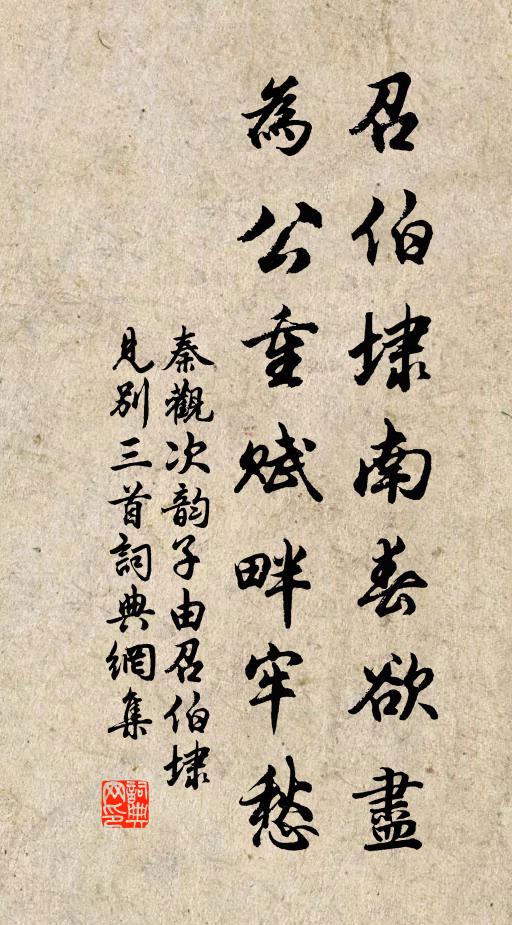 召伯埭南春欲盡
為公重賦畔牢愁
秦觀次韵子由召伯埭
見別三首詞典網集
詞典
网印